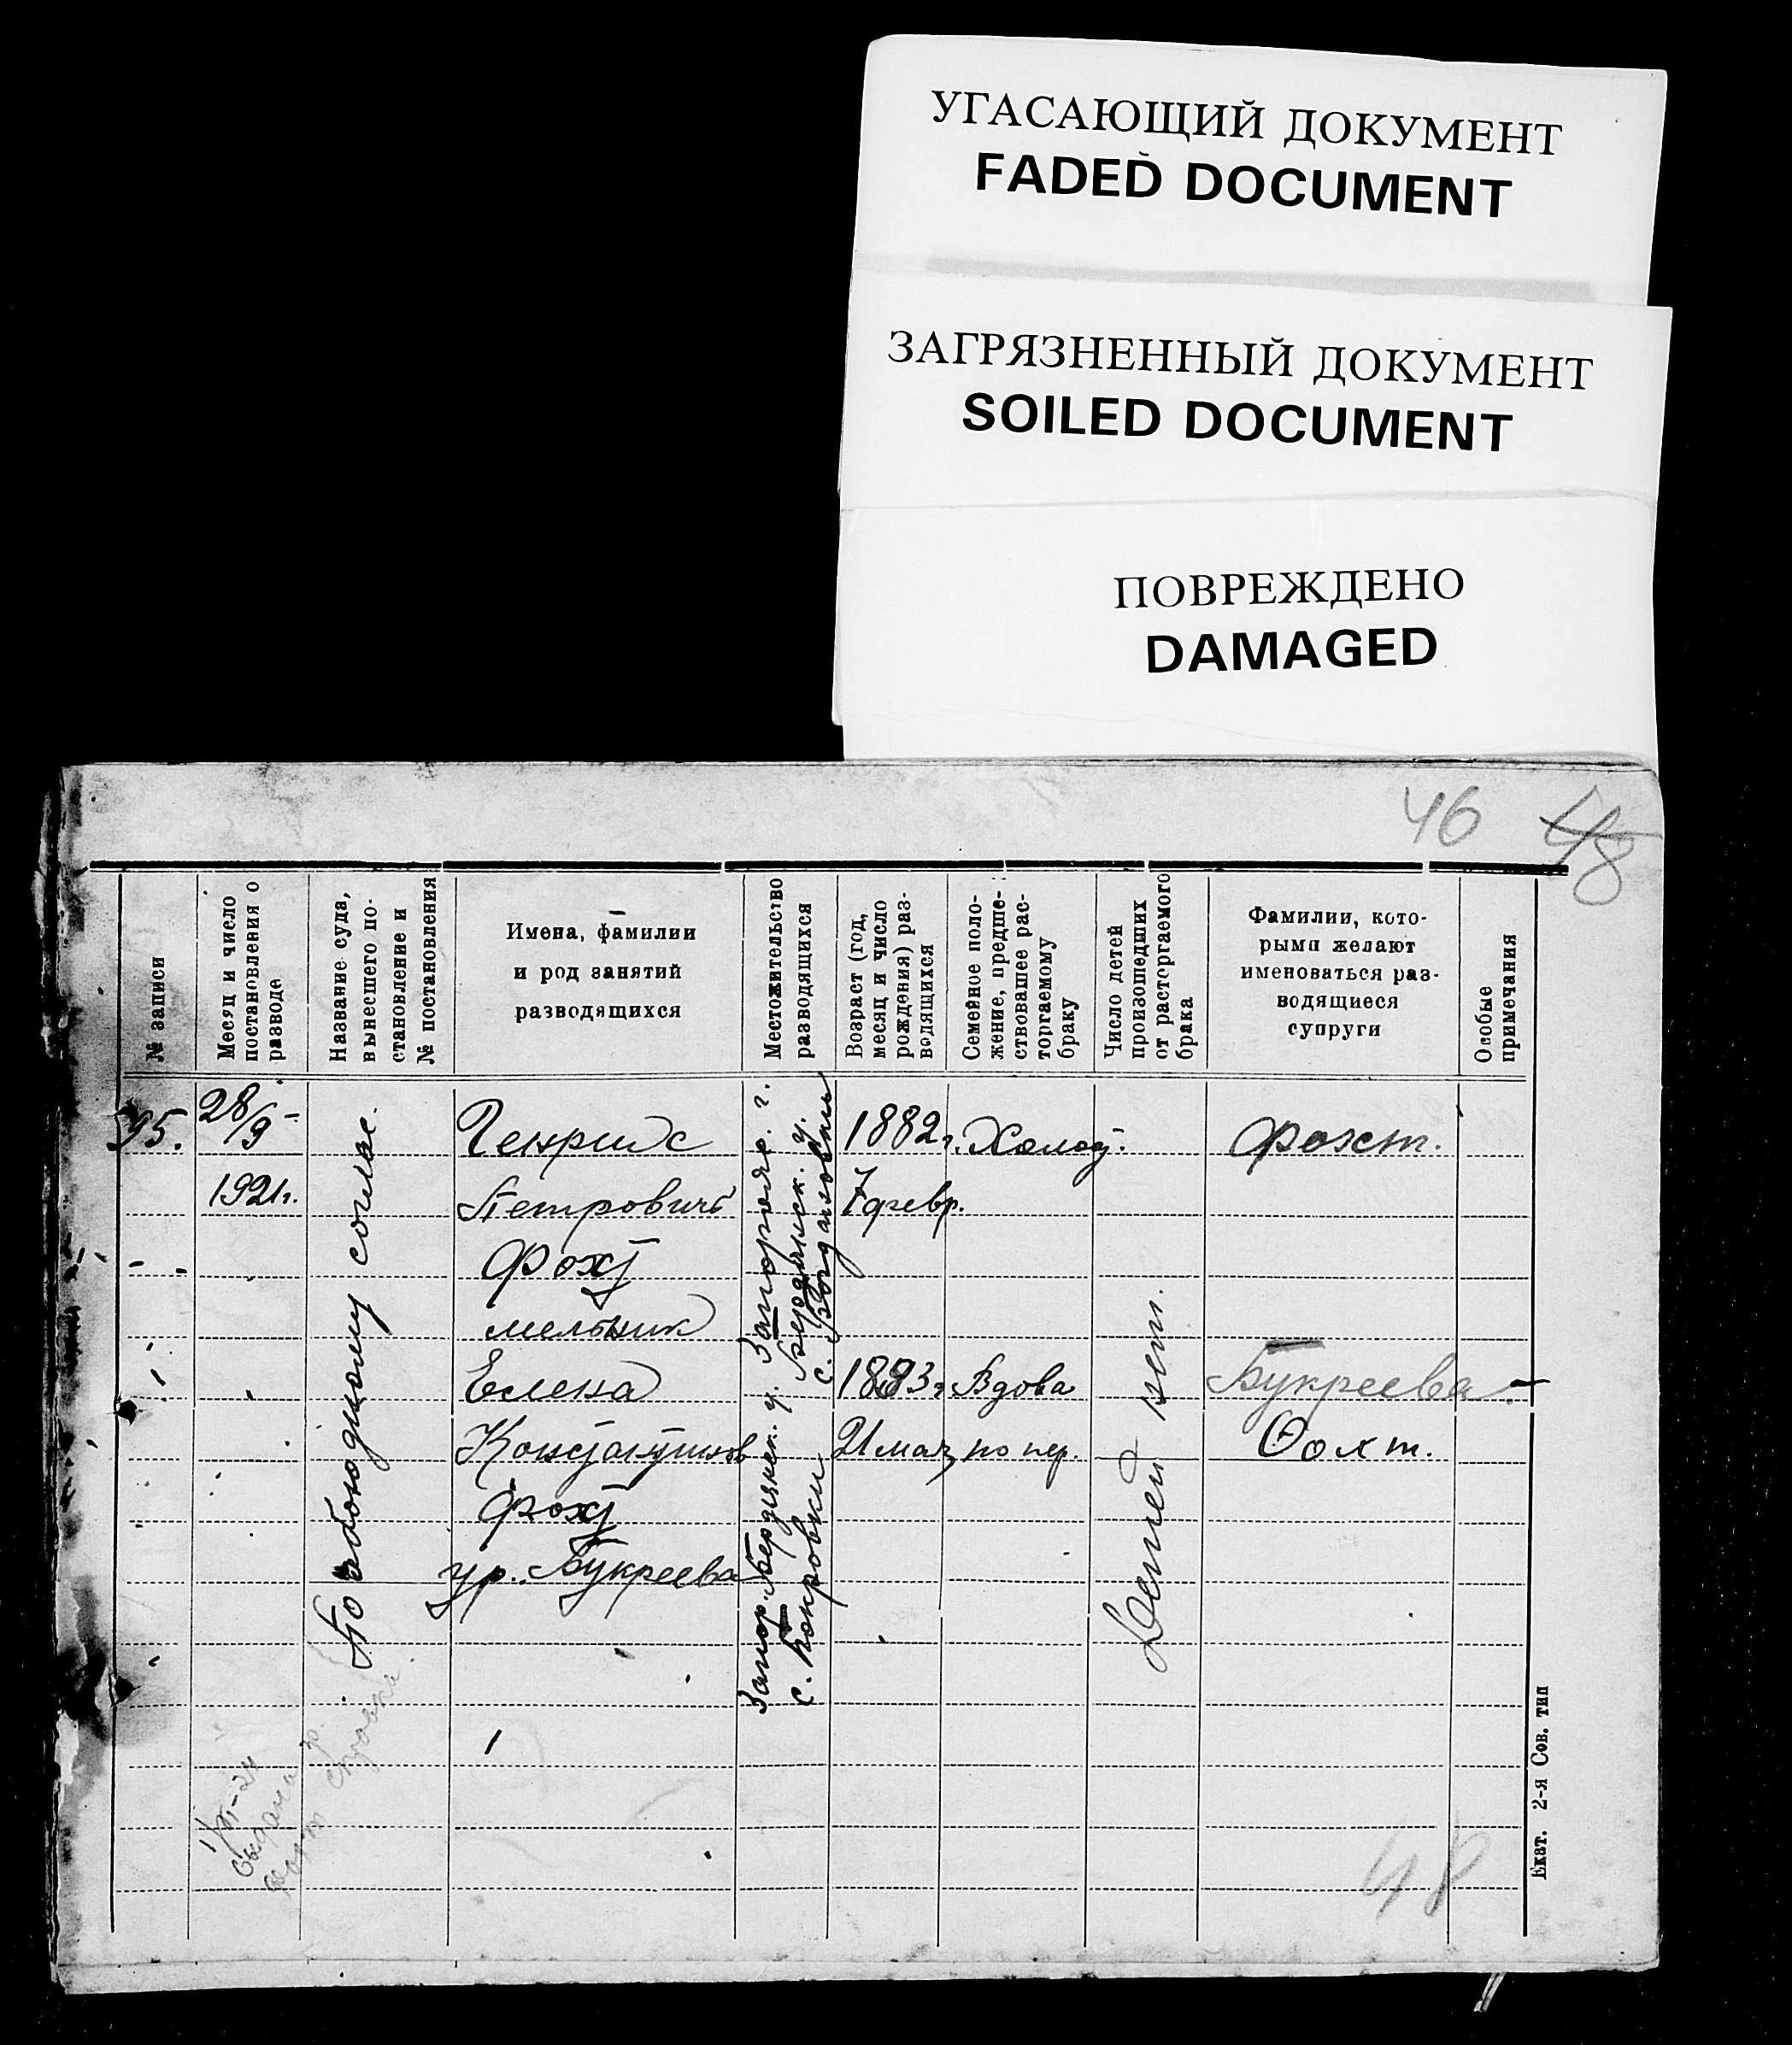 УГАСАЮЩИЙ ДОКУМЕНТ
FADED DOCUMENT
ЗАГРЯЗНЕННЫЙ ДОКУМЕНТ
SOILED DOCUMENT
ПОВРЕЖДЕНО
DAMAGED
46 48
№ записи
Месяц и число
постановления о
разводе
Название суда,
вынесшего по-
становление и
№ постановления
Имена, фамилии
и род занятий
разводящихся
Местожительство
разводящихся
Возраст (год,
месяц и число
рождения) раз-
водящихся
Семейное поло-
жение, предше-
ствовавшее рас-
торгаемому
браку
Число детей
происшедших
от расторгаемого
брака
Фамилии, кото-
рыми желают
именоваться раз-
водящиеся
супруги
Особые
примечания
95.
28/9
1921г.
По обоюдному соглас.
Генрих
Петрович
Фохт
мельник
Елена
Константинов
Фохт
ур. Букреева
Запорожс. г.
Бердянск. у.
с. Богдановки
Запор. г. Бердянск. у.
с. Покровки
1882г.
7 февр.
1883г
21 мая
Холост.
Вдова
по пер.
Детей нет.
Фохт.
Букреева
Фохт.
выдана
48
Екат. 2-я Сов. тип